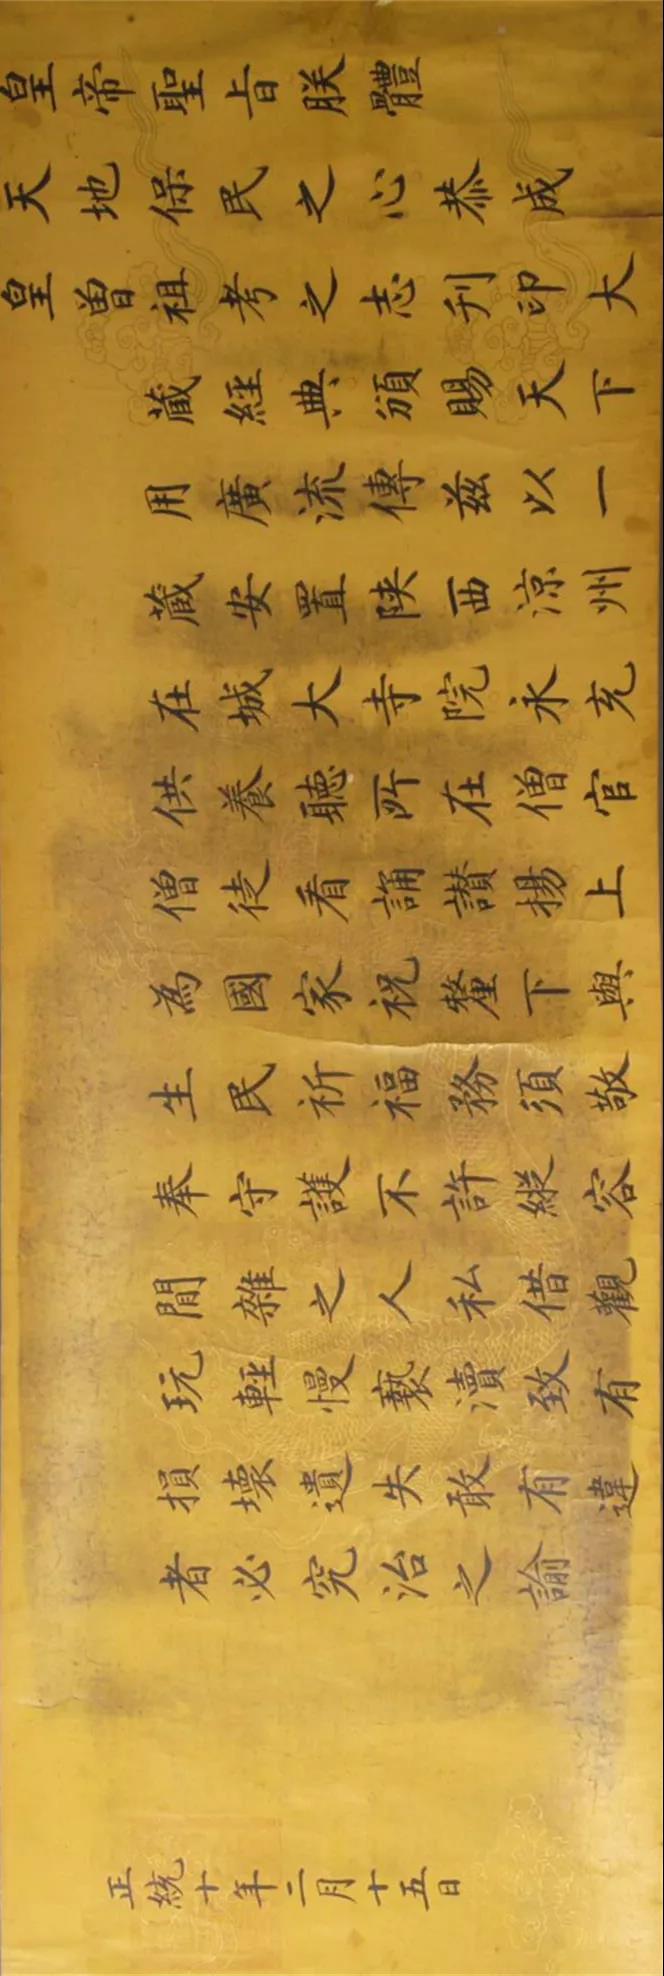 皇帝聖旨朕體
天地保民之心恭成
皇曾祖考之志刋印大
藏經典頒賜天下
用廣流傳茲以一
藏安置陕西涼州
在城大寺院永充
供養聽所在僧官
僧徒看誦讃揚上
為國家祝釐下與
生民祈福務須敬
奉守護不許縱容
閒雜之人私借觀
玩輕慢褻瀆致有
損壞遺失敢有違
者必究治之諭
正統十年二月十五日